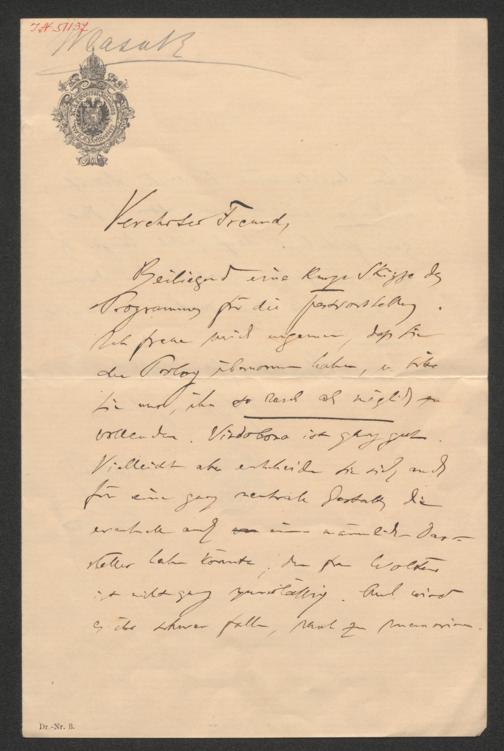 Masak
Verehrter Freund,
Beiliegend eine kurze Skizze des
Programmes für die Festvorstellung.
Ich freue mich ungemein, daß Sie
den Prolog übernommen haben, u. bitte
Sie nur, ihn so rasch als möglich zu
vollenden. Vindobona ist ganz gut.
Vielleicht aber entscheiden Sie sich auch
für eine ganz neutrale Gestalt, die
eventuell auch einen männlichen Dar-
steller haben könnte, denn Frau Wolter
ist nicht ganz zuverlässig. Auch wird
es ihr schwer fallen, rasch zu memoriren.
Dr.-Nr. 8.